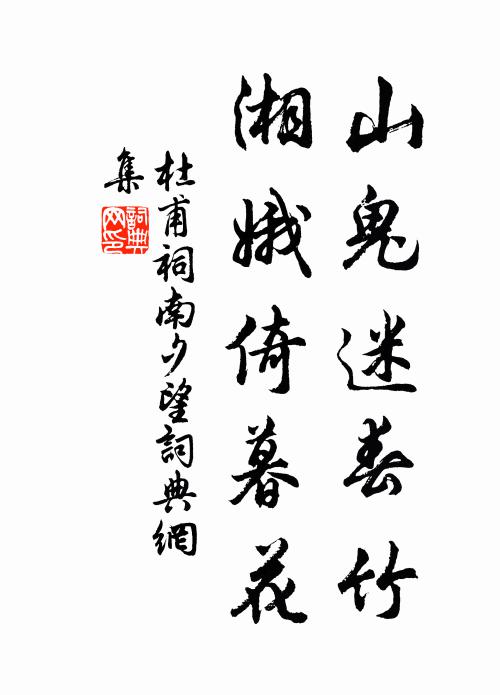 山鬼迷春竹
湘娥倚暮花
杜甫祠南夕望詞典網
集
詞典
网印